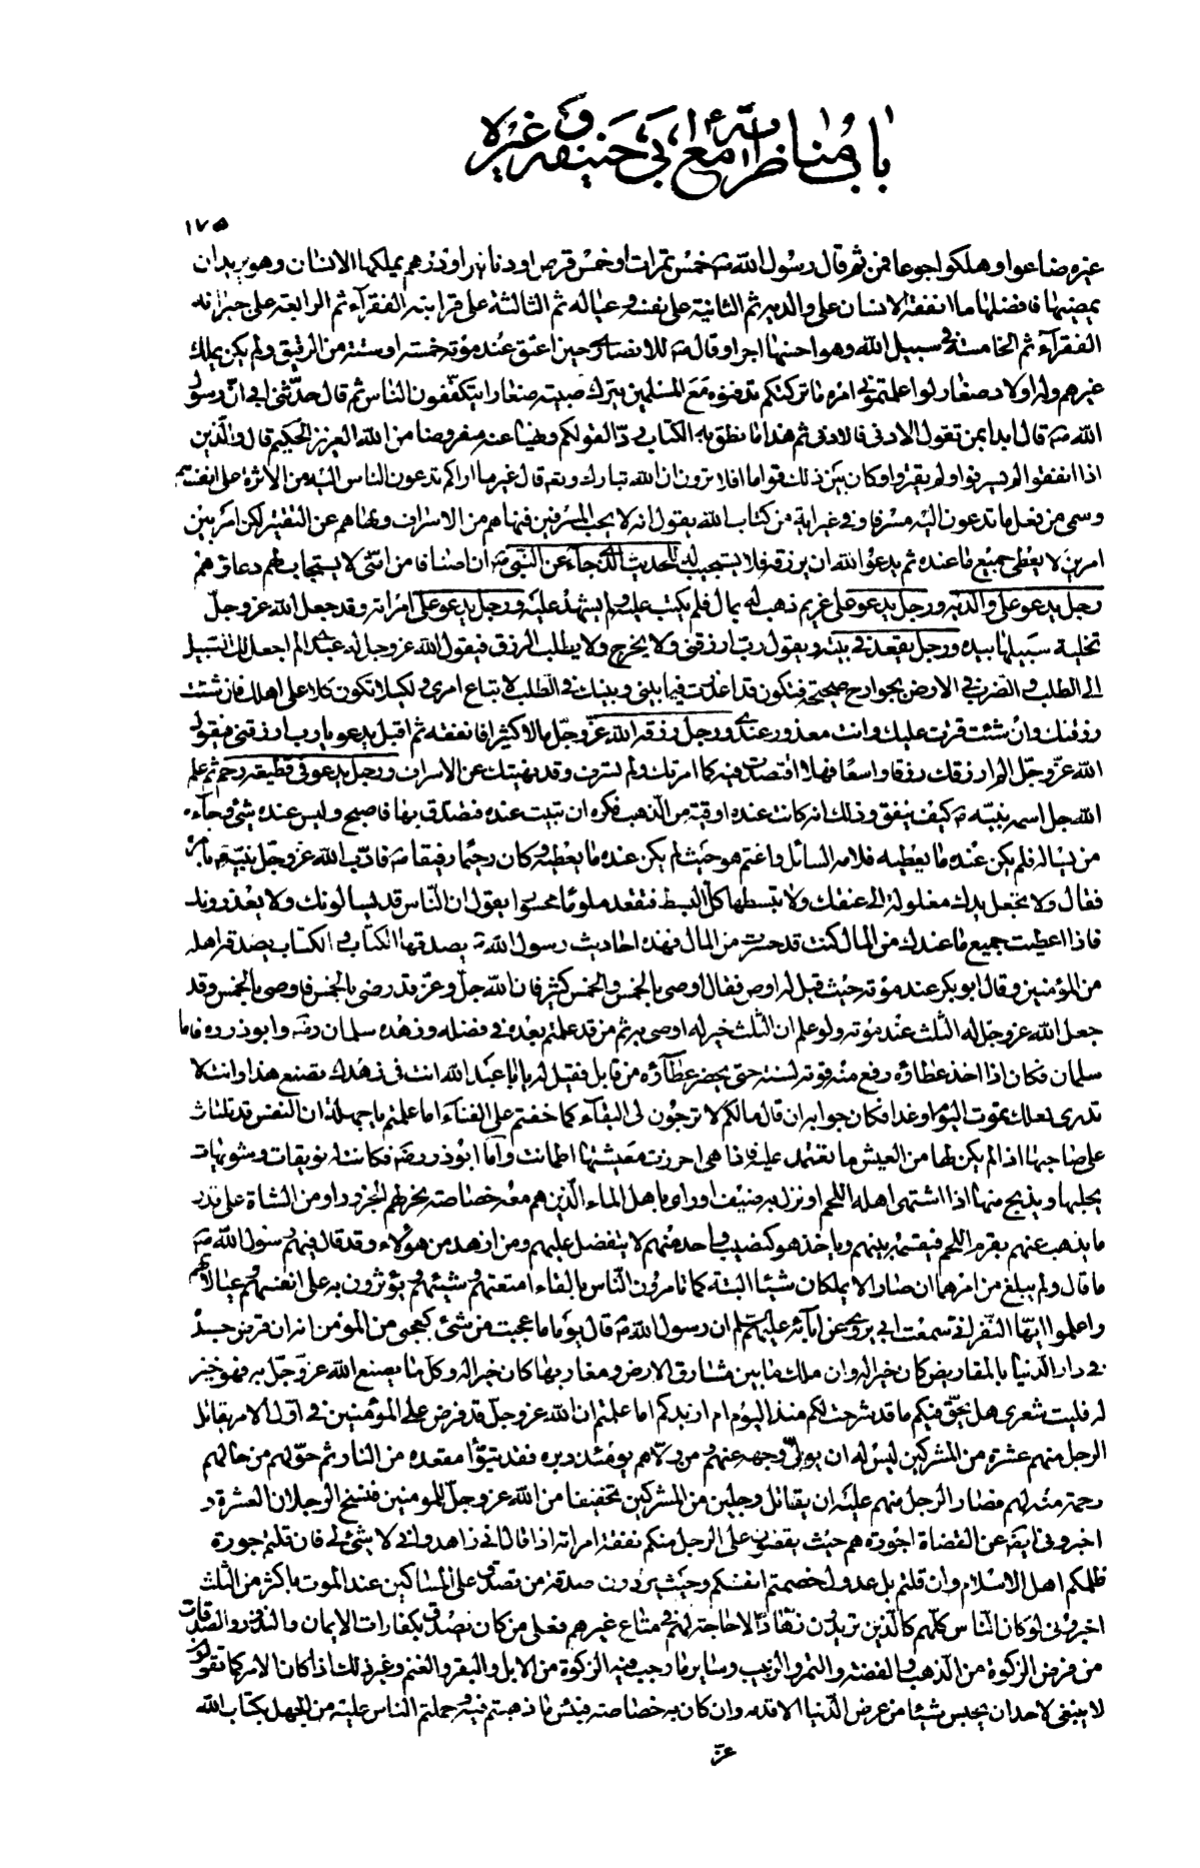 باب مناظراته ع مع ابی حنیفه و غیره
۱۷۵
غیره ضاعوا و هلکوا جوعا فمن ثم قال رسول الله ص خمس تمرات او خمس قرص او دنانیر او درهم یملکها الانسان و هو یرید ان
یمضیها فافضلها ما انفقه الانسان علی والدیه ثم الثانیة علی نفسه و عیاله ثم الثالثة علی قرابته الفقرآء ثم الرابعة علی جیرانه
الفقرآء ثم الخامسة فی سبیل الله و هو احسنها اجرا و قال ص للانصاری حین اعتق عند موته خمسة او ستة من الرقیق و لم یکن یملک
غیرهم و له اولاد صغار لو اعلمتمونی امره ما ترکتکم تدفنوه مع المسلمین یترک صبیة صغارا یتکففون الناس ثم قال حدثنی ابی ان رسول
الله ص قال ابدا بمن تعول الادنی فالادنی ثم هذا ما نطق به الکتاب ردّا لقولکم و نهیا عنه مفروضا من الله العزیز الحکیم قال و الّذین
اذا انفقوا لم یسرفوا و لم یقتروا و کان بین ذلک قواما افلا ترون ان الله تبارک و تعه قال غیر ما اراکم تدعون الناس الیه من الاثرة علی انفسهم
و سمی من فعل ما تدعون الیه مسرفا و فی غیر ایة من کتاب الله یقول انه لا یحب المسرفین فنهاهم عن الاسراف و نهاهم عن التقتیر لکن امر بین
امرین لا یعطی جمیع ما عنده ثم یدعو الله ان یرزقه فلا یستجیب له للحدیث الّذی جآء عن النّبی ص ان اصنافا من امّتی لا یستجاب لهم دعاؤهم
رجل یدعو علی والدیه و رجل یدعو علی غریم ذهب له بمال فلم یکتب علیه و لم یشهد علیه و رجل یدعو علی امراته و قد جعل الله عز و جلّ
تخلیة سبیلها بیده و رجل یقعد فی بیته و یقول ربّ ارزقنی و لا یخرج و لا یطلب الرزق فیقول الله عز و جل له عبدی الم اجعل لک السّبیل
الی الطلب و الضرب فی الارض بجوارح صحیحة فتکون قد اعذرت فیما بینی و بینک فی الطلب لاتباع امری و لکیلا تکون کلّا علی اهلک فان شئت
رزقتک و ان شئت قترت علیک و انت معذور عندی و رجل رزقه الله عز و جلّ مالا کثیرا فانفقه ثم اقبل یدعو یا رب ارزقنی فیقول
الله عزّ و جلّ الم ارزقک رزقا واسعا فهلا اقتصدت فیه کما امرتک و لم تسرف و قد نهیتک عن الاسراف و رجل یدعو فی قطیعة رحم ثم علم
الله جل اسمه نبیّه ص کیف ینفق و ذلک انه کانت عنده اوقیة من الذهب فکره ان تبیت عنده فتصدّق بها فاصبح و لیس عنده شیء و جآءه
من یساله فلم یکن عنده ما یعطیه فلامه السائل و اغتم هو حیث لم یکن عنده ما یعطیه و کان رحیما رفیقا ص فادّب الله عز و جلّ نبیّه ص بامره
فقال و لا تجعل یدک مغلولة الی عنقک و لا تبسطها کلّ البسط فتقعد ملوما محسورا یقول ان النّاس قد یسالونک و لا یعذرونک
فاذا اعطیت جمیع ما عندک من المال کنت قد حسرت من المال فهذه احادیث رسول الله ص یصدقها الکتاب و الکتاب یصدقه اهله
من المؤمنین و قال ابو بکر عند موته حیث قیل له اوص فقال اوصی بالخمس و الخمس کثیر فان الله جلّ و عزّ قد رضی بالخمس فاوصی بالخمس و قد
جعل الله عز و جلّ له الثلث عند موته و لو علم ان الثلث خیر له اوصی به ثم من قد علمتم بعده فی فضله و زهده سلمان رضه و ابو ذر ره فاما
سلمان فکان اذا اخذ عطاؤه رفع منه قوته لسنته حتی یحضر عطآؤه من قابل فقیل له یا ابا عبد الله انت فی زهدک تصنع هذا و انت لا
تدری لعلک تموت الیوم او غدا فکان جوابه ان قال ما لکم لا ترجون لی البقآء کما خفتم علی الفنآء اما علمتم یا جهلة ان النفس قد تلتاث
علی صاحبها اذا لم یکن لها من العیش ما تعتمد علیه فاذا هی احرزت معیشتها اطمانت و اما ابوذر رضه فکانت له نویقات و شویهات
یحلبها و یذبح منها اذا اشتهی اهله اللحم او نزل به ضیف او رای باهل الماء الّذین هم معه خصاصة نحر لهم الجزور او من الشاة علی قدر
ما یذهب عنهم بقرم اللحم فیقسمه بینهم و یاخذ هو کنصیب واحد منهم لا یتفضل علیهم و من ازهد من هؤلاء و قد قال فیهم رسول الله ص
ما قال و لم یبلغ من امرهما ان صارا لا یملکان شیئا البتة کما تامرون النّاس بالقاء امتعتهم و شیئهم و یؤثرون به علی انفسهم و عیالاتهم
و اعلموا ایّها النّفر انی سمعت ابی یروی عن آبائه علیهم السّلم ان رسول الله ص قال یوما ما عجبت من شیء کعجبی من المؤمن انه ان قرض جسده
فی دار الدّنیا بالمقاریض کان خیرا له و ان ملک ما بین مشارق الارض و مغاربها کان خیرا له و کل ما یصنع الله عزّ و جلّ به فهو خیر
له فلیت شعری هل یحقّ فیکم ما قد شرحت لکم منذ الیوم ام ازیدکم اما علمتم ان الله عز و جلّ قد فرض علی المؤمنین فی اوّل الامر یقاتل
الرجل منهم عشرة من المشرکین لیس له ان یولّی وجهه عنهم و من ولّاهم یومئذ دبره فقد تبوّا مقعده من النار ثم حوّلهم من حالهم
رحمة منه لهم فصار الرجل منهم علیه ان یقاتل رجلین من المشرکین تخفیفا من الله عز و جلّ للمومنین فنسخ الرجلان العشرة و
اخبرونی ایضه عن القضاة اجورة هم حیث یقضون علی الرجل منکم نفقة امراته اذا قال انی زاهد و انی لا شیء لی فان قلتم جورة
ظلمکم اهل الاسلام و ان قلتم بل عدول خصمتم انفسکم و حیث یردون صدقة من تصدق علی المساکین عند الموت باکثر من الثلث
اخبرونی لو کان النّاس کلّهم کالّذین تریدون زهّادا لا حاجة لهم فی متاع غیرهم فعلی من کان یصّدق بکفارات الایمان و النذور و الصدقات
من فرض الزکوة من الذهب و الفضة و التمر و الزبیب و سایر ما وجب فیه الزکوة من الابل و البقر و الغنم و غیر ذلک اذا کان الامر کما تقولون
لا ینبغی لاحد ان یحبس شیئا من عرض الدّنیا الا قدمه و ان کان به خصاصة فبئس ما ذهبتم فیه و حملتم الناس علیه من الجهل بکتاب الله
عز